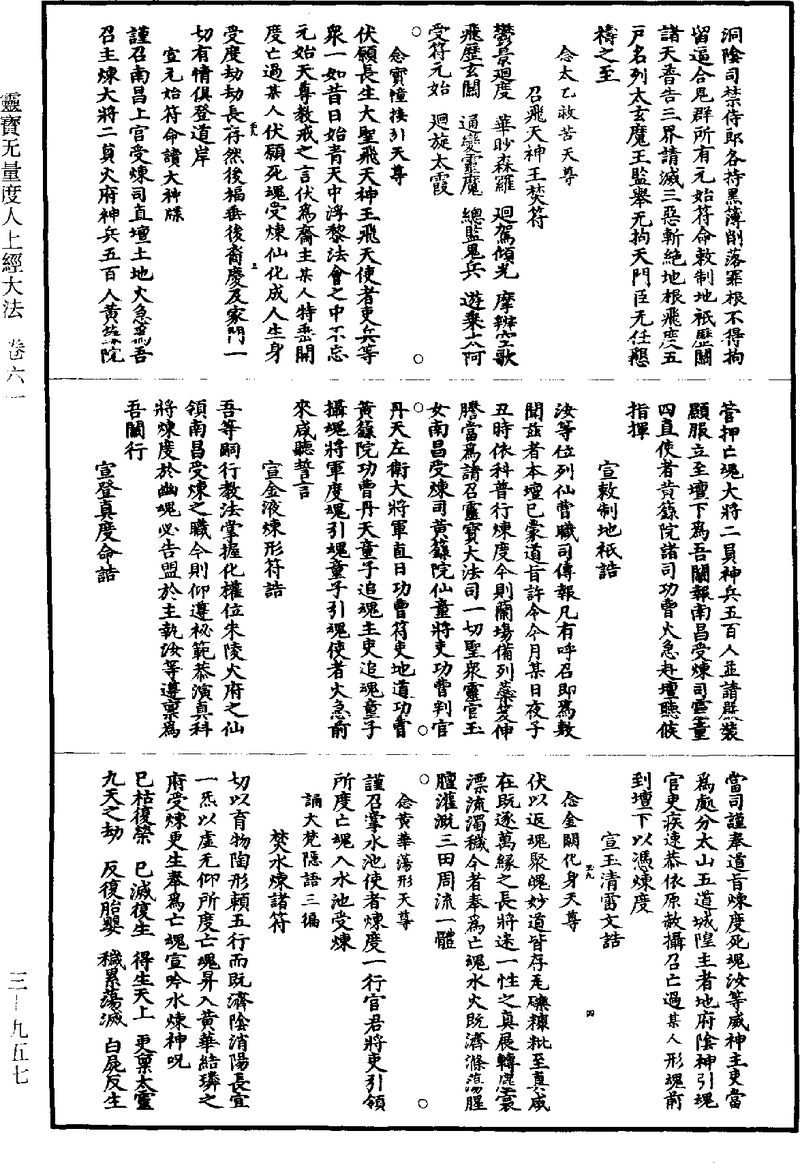 洞陰司禁侍郎各持黑簿削落罪根不得拘
留逼合鬼群所有元始符命敕制地祇歷關
諸天普告三界請滅三惡斬絕地根飛度五
戶名列太玄魔王監舉无拘天門臣无任懇
禱之至
念太乙救苦天尊
召飛天神王焚符
鬱景迴度 華眇森羅 迴駕傾光 摩辨空歌
飛歷玄關 通變靈魔 總監鬼兵 遊乘太阿
受符元始 迴旋太霞
念寶幢接引天尊
伏願長生大聖飛天神王飛天使者吏兵等
衆一如昔日始青天中浮黎法會之中不忘
元始天尊教戒之言伏爲齋主某人特垂開
度亡過某人伏願死魂受煉仙化成人生身
受度劫劫長存然後福垂後裔慶及家門一
切有情俱登道岸
宣元始符命讀大神牒
謹召南昌上官受煉司直壇土地火急爲吾
召主煉大將二員火府神兵五百人黃籙院
管押亡魂大將二員神兵五百人並請嚴裝
顯服立至壇下爲吾關報南昌受煉司靈童
四直使者黃籙院諸司功曹火急赴壇聽候
指揮
宣敕制地祇誥
汝等位列仙曹職司傳報凡有呼召即爲敷
聞茲者本壇已蒙道旨許令今月某日夜子
丑時依科普行煉度今則蘭場備列藥芝伸
醪當爲請召靈寶大法司一切聖衆靈官玉
女南昌受煉司黃籙院仙童將吏功曹判官
丹天左衛大將軍直日功曹符吏地道功曹
黃籙院功曹丹天童子追魂主吏追魂童子
攝魂將軍度魂引魂童子引魂使者火急前
來咸聽誓言
宣金液煉形符誥
吾等嗣行教法掌握化權位朱陵火府之仙
領南昌受煉之職今則仰遵祕範恭演真科
將煉度於幽魂必告盟於主執汝等遵稟爲
吾關行
宣登真度命誥
當司謹奉道旨煉度死魂汝等威神主吏當
爲處分太山五道城隍主者地府陰神引魂
官吏疾速恭依原赦攝召亡過某人形魂前
到壇下以憑煉度
宣玉清雷文誥
念金闕化身天尊
伏以返魂聚魄妙道皆存尾礫糠粃至真咸
在既逐萬緣之長將迷一性之真展轉塵寰
漂流濁穢今者奉爲亡魂水火既濟滌蕩腥
膻灌溉三田周流一體
念黃華蕩形天尊
謹召掌水池使者煉度一行官君將吏引領
所度亡魂入水池受煉
誦大梵隱語三徧
焚水煉諸符
切以育物陶形賴五行而既濟陰消陽長宣
一炁以虛无仰所度亡魂昇入黃華結璘之
府受煉更生奉爲亡魂宣吟水煉神呪
已枯復榮 已滅復生 得生天上 更稟太靈
九天之劫 反復胎嬰 穢累蕩滅 白屍反生
靈寶无量度人上經大法 卷六一
三—九五七